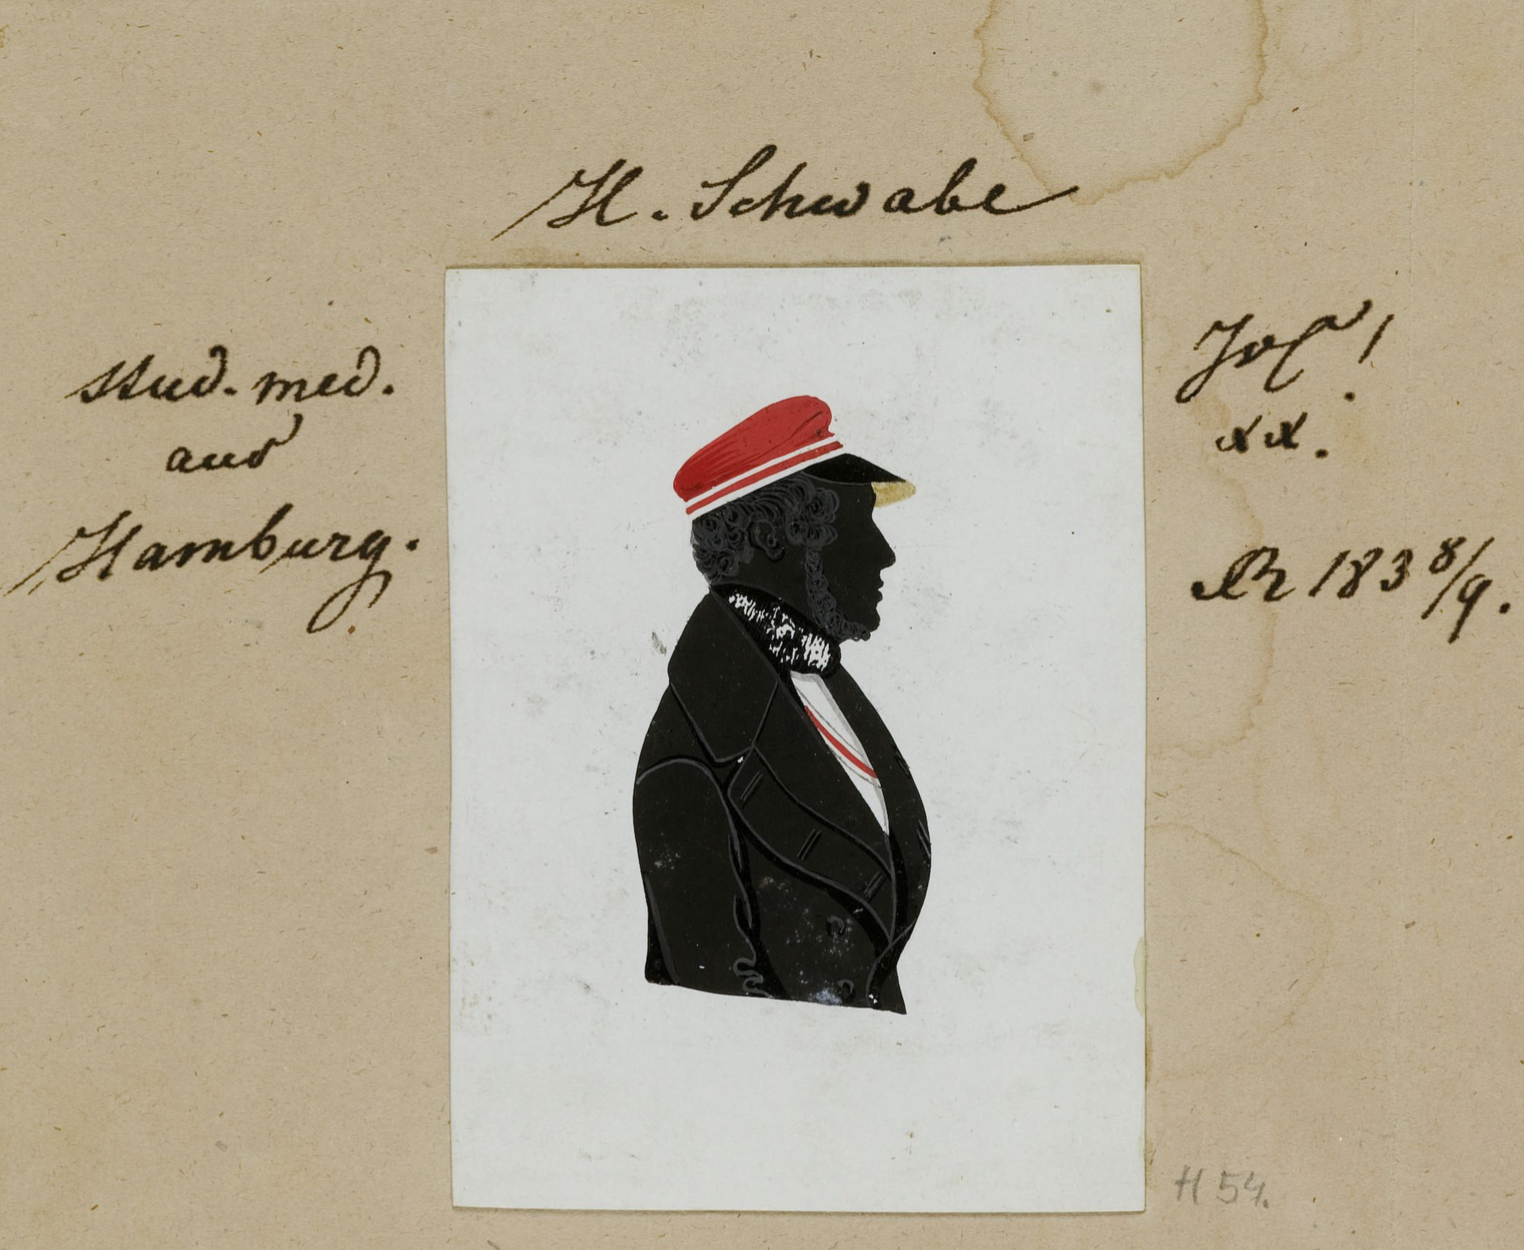 H. Schwabe
stud. med.
aus
Hamburg.
xx.
183 8/9.
H 54.